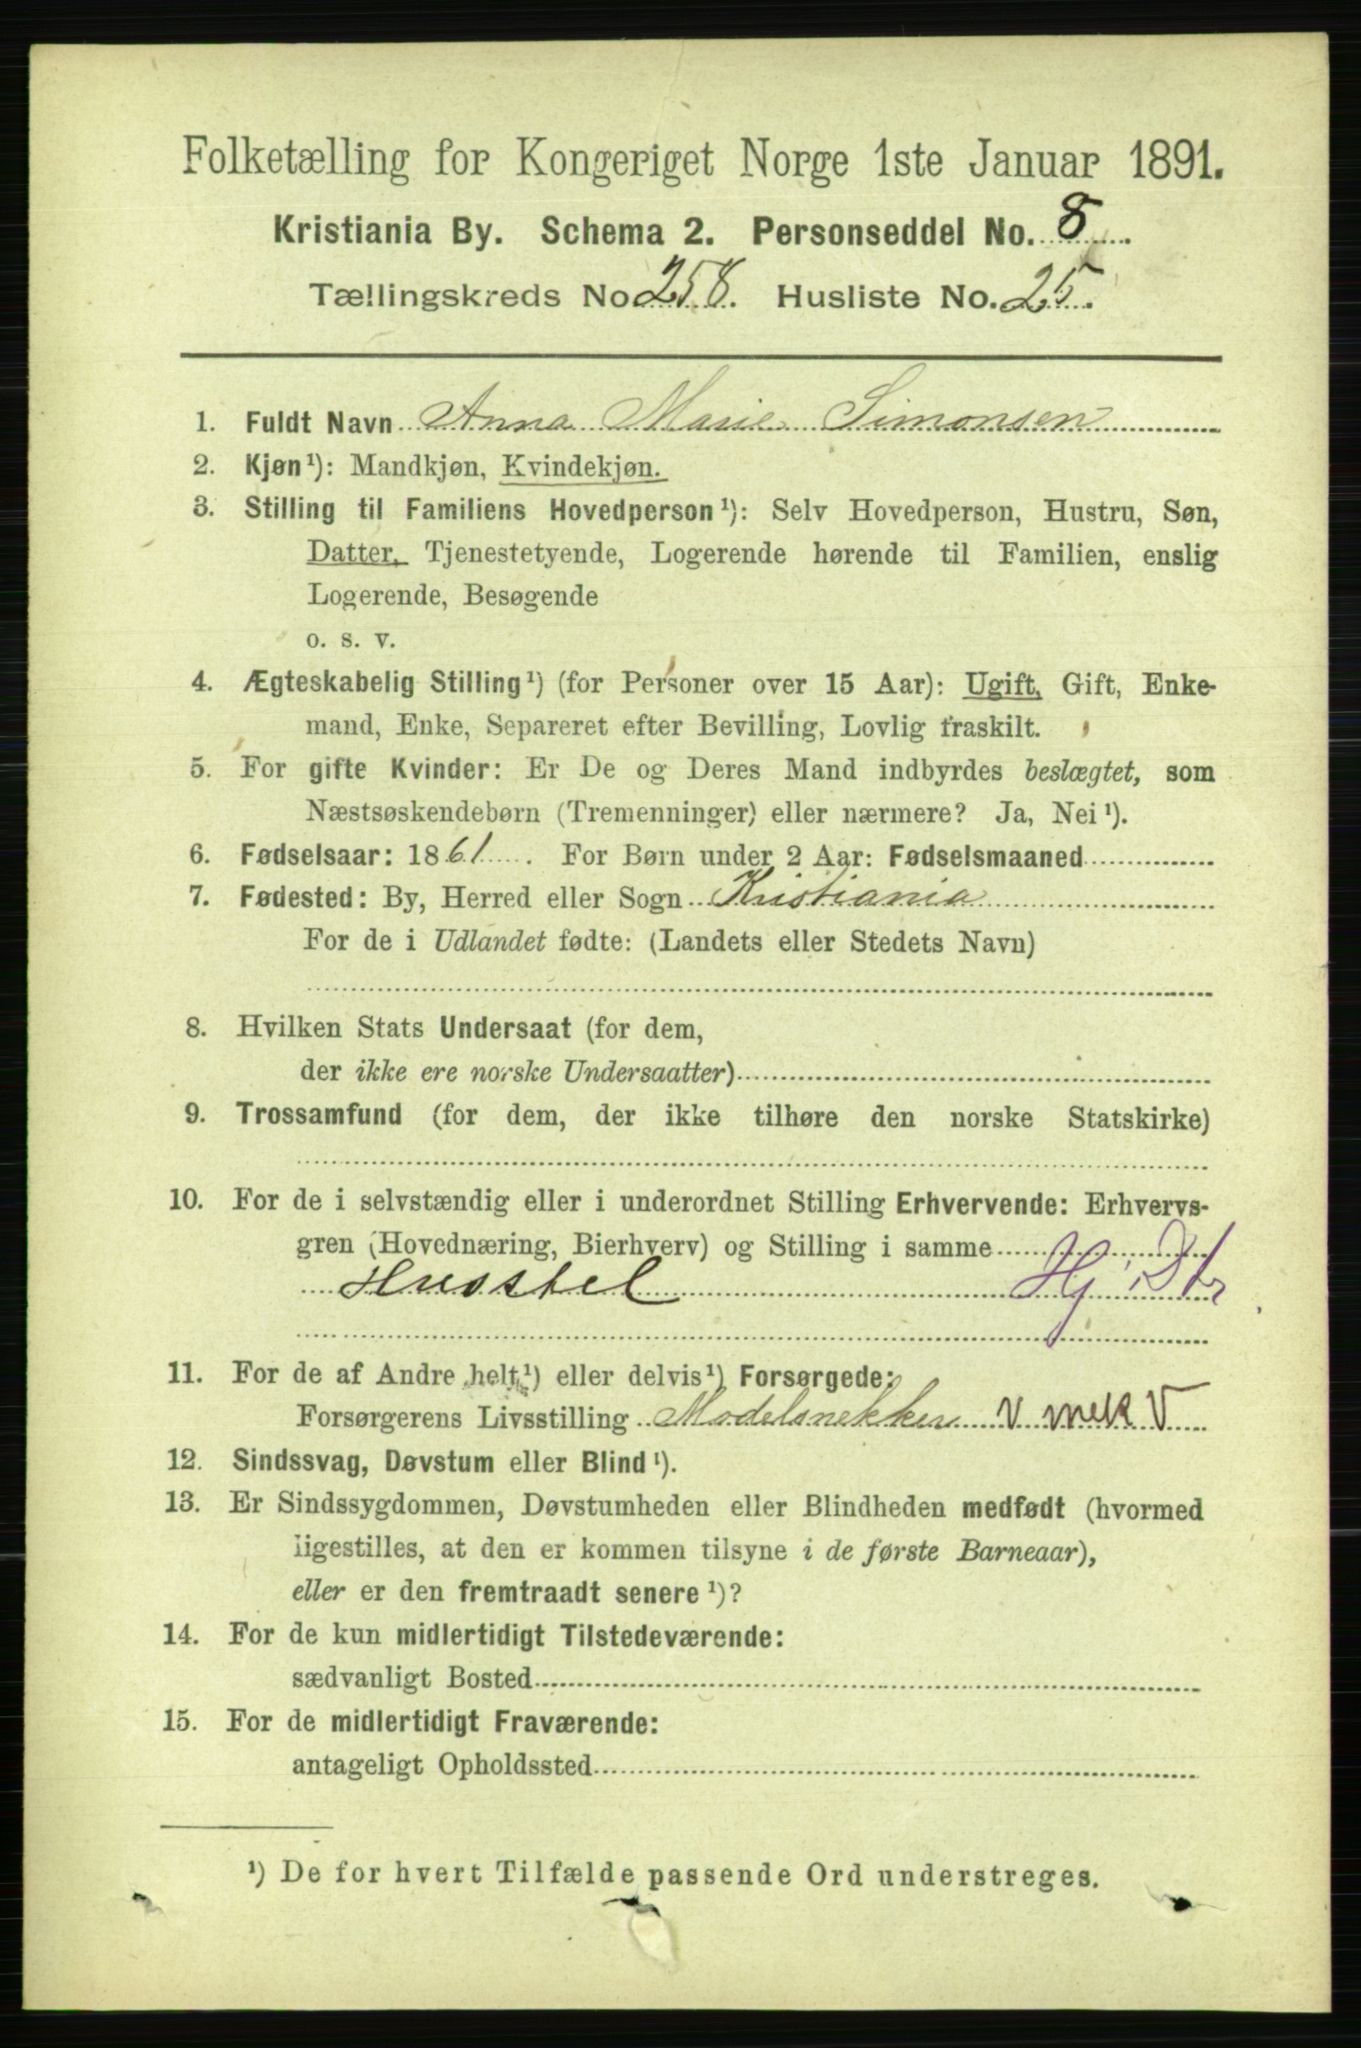 Folketælling for Kongeriget Norge 1ste Januar 1891.
Kristiania By. Schema 2. Personseddel No. 8
Tællingskreds No 258. Husliste No. 25.
1. Fuldt Navn Anna Marie Simonsen
2. Kjøn¹): Mandkjøn, Kvindekjøn.
3. Stilling til Familiens Hovedperson¹): Selv Hovedperson, Hustru, Søn,
Datter, Tjenestetyende, Logerende hørende til Familien, enslig
Logerende, Besøgende
o. s. v.
4. Ægteskabelig Stilling¹) (for Personer over 15 Aar): Ugift, Gift, Enke-
mand, Enke, Separeret efter Bevilling, Lovlig fraskilt.
5. For gifte Kvinder: Er De og Deres Mand indbyrdes beslægtet, som
Næstsøskendebørn (Tremenninger) eller nærmere? Ja, Nei¹).
6. Fødselsaar: 1861. For Børn under 2 Aar: Fødselsmaaned
7. Fødested: By, Herred eller Sogn Kristiania
For de i Udlandet fødte: (Landets eller Stedets Navn)
8. Hvilken Stats Undersaat (for dem,
der ikke ere norske Undersaatter)
9. Trossamfund (for dem, der ikke tilhøre den norske Statskirke)
10. For de i selvstændig eller i underordnet Stilling Erhvervende: Erhvervs-
gren (Hovednæring, Bierhverv) og Stilling i samme
Husstel Hj. Dtr
11. For de af Andre helt¹) eller delvis¹) Forsørgede:
Forsørgerens Livsstilling Modelsnekker v mek V
12. Sindssvag, Døvstum eller Blind¹).
13. Er Sindssygdommen, Døvstumheden eller Blindheden medfødt (hvormed
ligestilles, at den er kommen tilsyne i de første Barneaar),
eller er den fremtraadt senere¹)?
14. For de kun midlertidigt Tilstedeværende:
sædvanligt Bosted
15. For de midlertidigt Fraværende:
antageligt Opholdssted
¹) De for hvert Tilfælde passende Ord understreges.